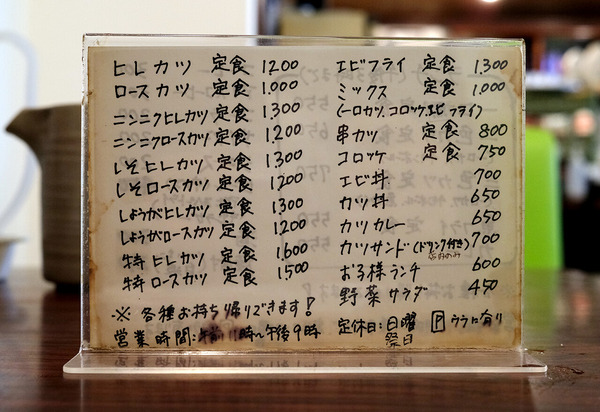 ヒレカツ 定食 1200
ロースカツ 定食 1.000
ニンニクヒレカツ 定食 1.300
ニンニクロースカツ 定食 1.200
しそヒレカツ 定食 1.300
しそロースカツ 定食 1200
しょうがヒレカツ 定食 1300
しょうがロースカツ 定食 1200
特ヒレカツ 定食 1.600
特ロースカツ 定食 1.500
エビフライ 定食 1,300
ミックス 定食 1.000
(一口カツ、コロッケ、エビフライ)
串カツ 定食 800
コロッケ 定食 750
エビ丼 700
カツ丼 650
カツカレー 650
カツサンド(ドリンク付き) 700
お子様ランチ 600
野菜サラダ 450
※ 各種お持ち帰りできます!
営業時間:午前11時〜午後9時
定休日:日曜
祭日
P ウラに有り